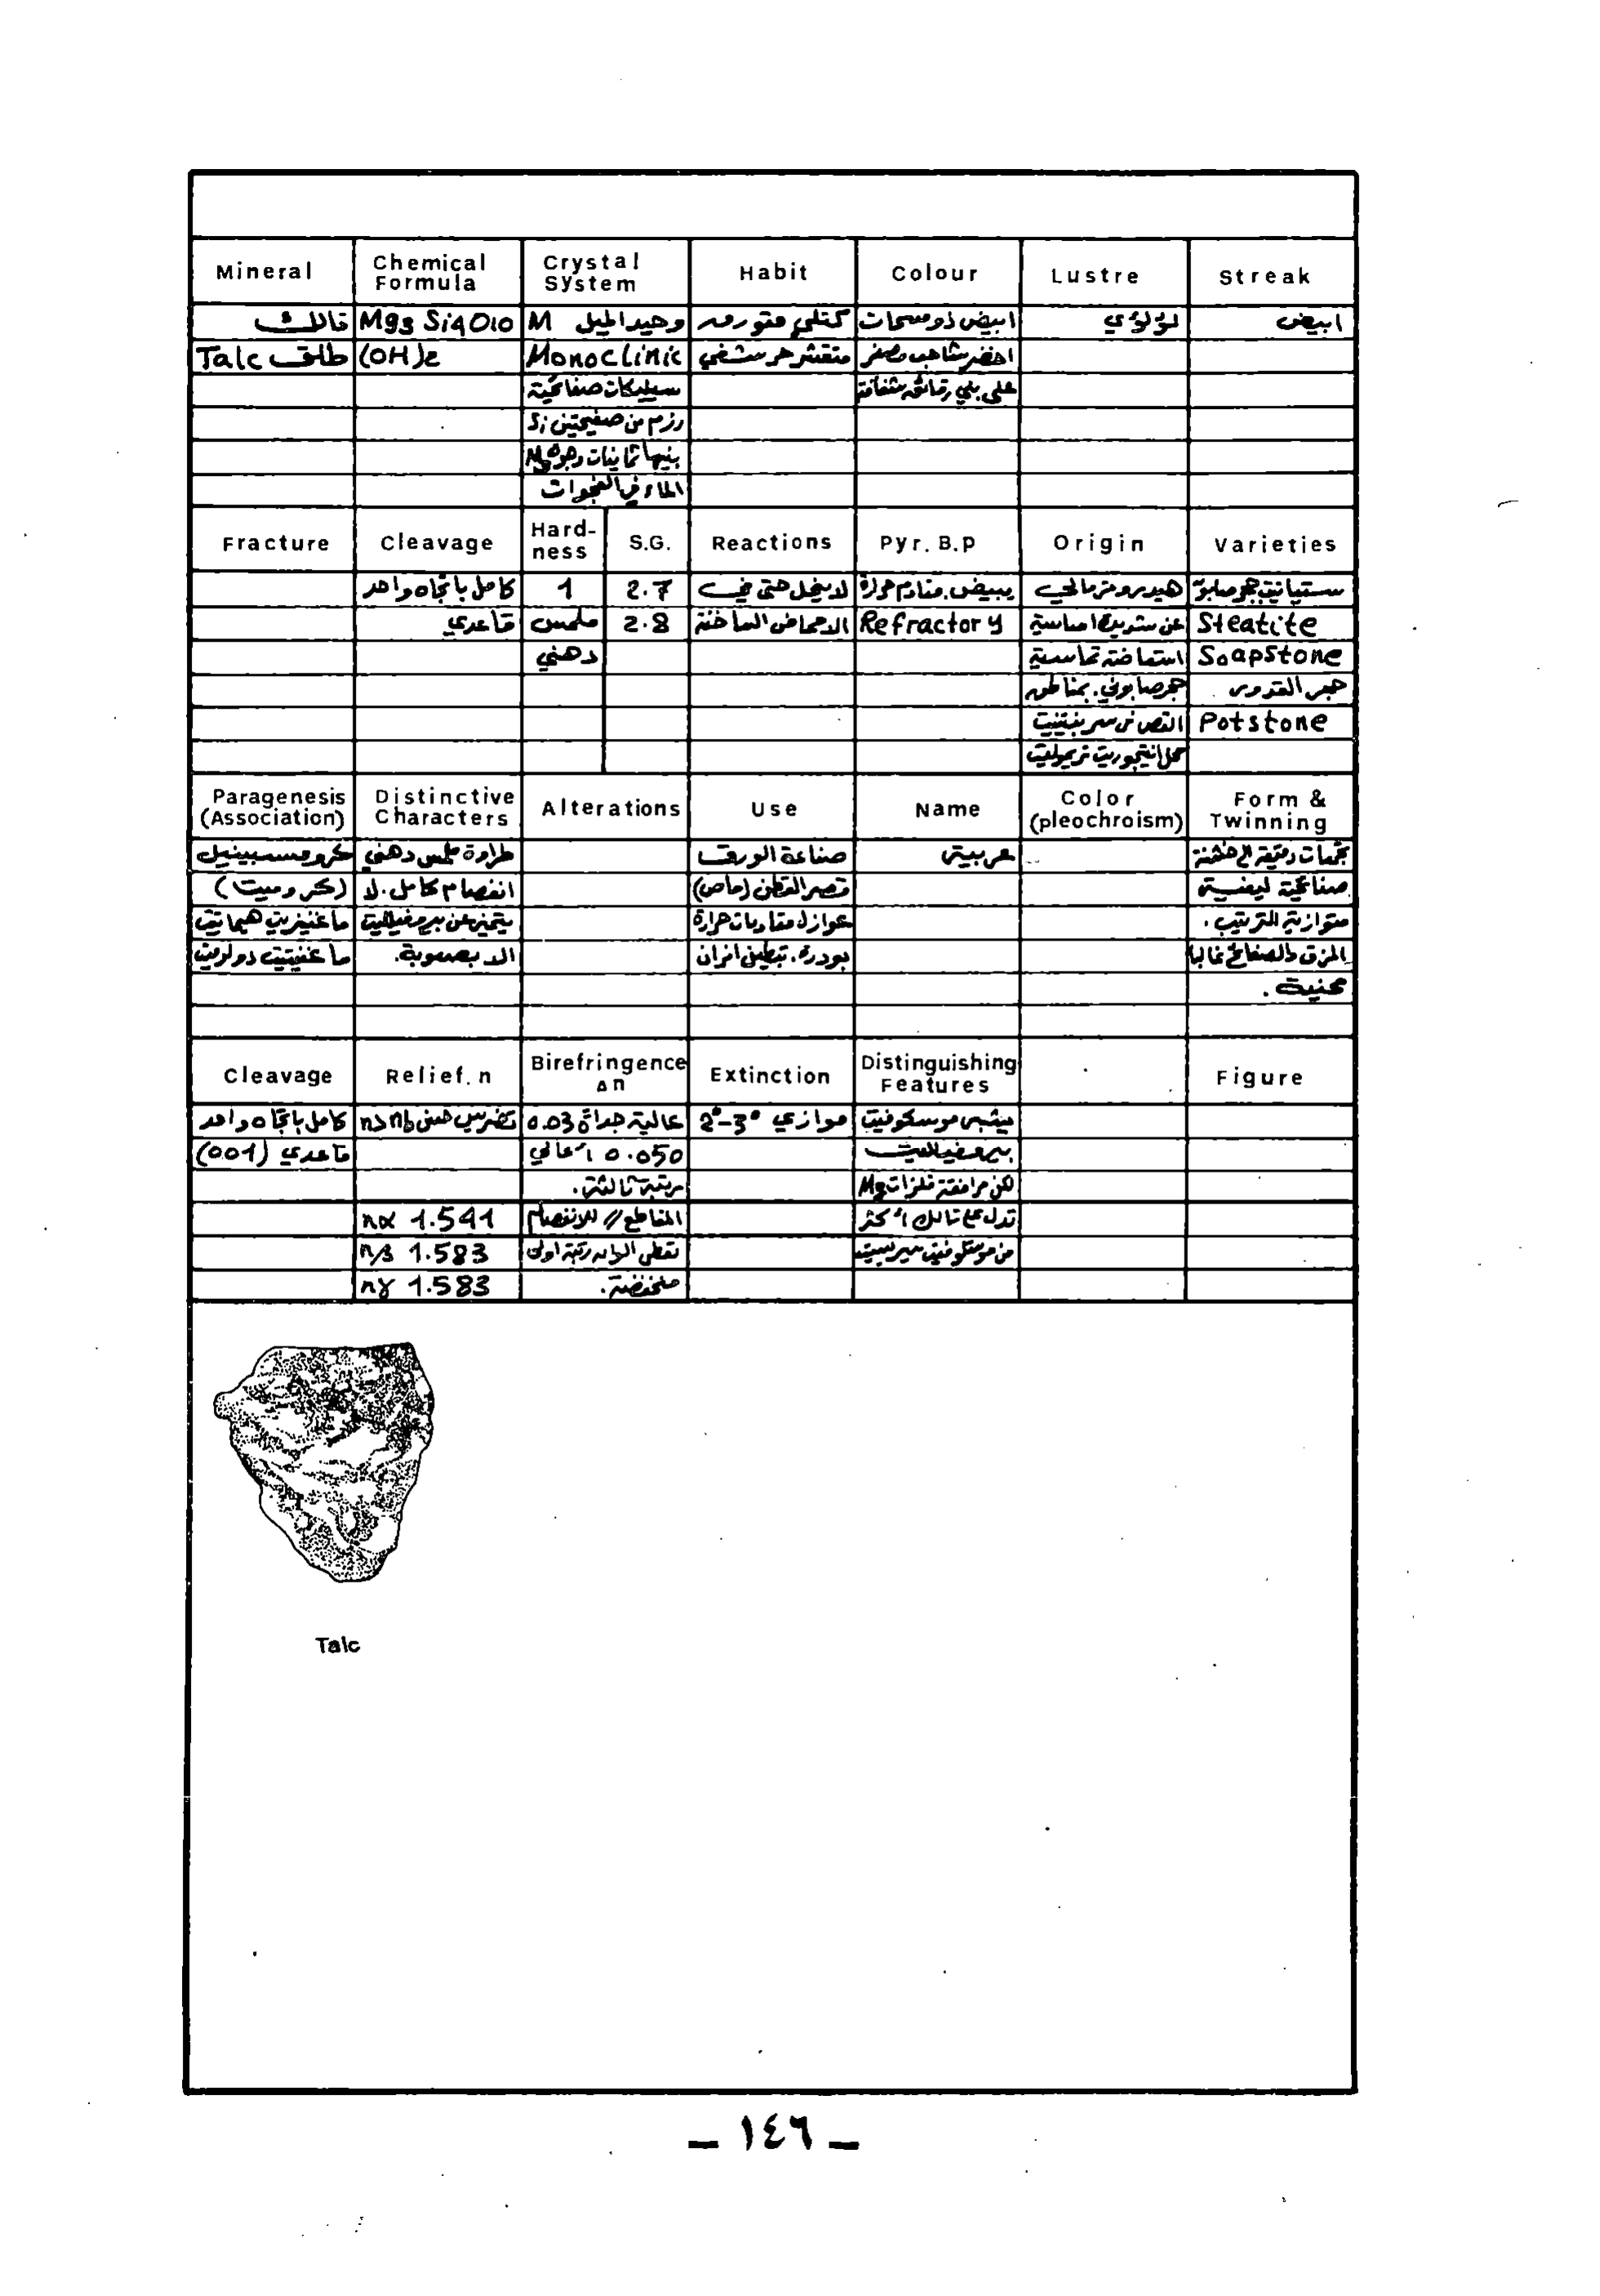 Mineral
Chemical Formula
Crystal System
Habit
Colour
Lustre
Streak
تالك
Mg3 Si4 O10
وحيد الميل M
كتلي متورق
ابيض ذو مسحات
لؤلؤي
ابيض
طلق Talc
(OH)2
Monoclinic
متقشر حرشفي
اخضر مشاهب مصفر
سيليكات صفائحية
على بني رقائق شفافة
رزم من صفيحتين Si
بينها
Mg
الماء في الفجوات
Fracture
Cleavage
Hardness
S.G.
Reactions
Pyr. B.p
Origin
Varieties
كامل باتجاه واحد
1
2.7
لا ينحل حتى في
يبيض. مقاوم حرارة
هيدروترمالي
قاعدي
ملمس
2.8
الاحماض الساخنة
Refractory
عن
Steatite
دهني
استعاضة تماسية
SoapStone
حجر صابوني. بمناطق
حجر القدور
القص
سربنتينيت
Potstone
انتيجوريت تريموليت
Paragenesis (Association)
Distinctive Characters
Alterations
Use
Name
Color (pleochroism)
Form & Twinning
كروم سبينيل
طراوة ملمس دهني
صناعة الورق
عربية
تجمعات دقيقة الى خشنة
(كروميت)
انفصام كامل. لا
قصر القطن (ماص)
صفائحية ليفية
ماغنيزيت هيماتيت
يتميز عن بيروفيلليت
عوازل مقاومات حرارة
متوازية الترتيب.
ماغنيتيت دولوميت
الا بصعوبة.
بودرة. تبطين افران
المزق والصفائح غالبا
محنية.
Cleavage
Relief. n
Birefringence Δn
Extinction
Distinguishing Features
Figure
كامل باتجاه واحد
تضريس حسن n>nb
عالية جداً 0.03
موازي 2°-3°
يشبه موسكوفيت
قاعدي (001)
0.050 أعالي
بيروفيلليت
رتبة ثالثة.
لكن مرافقة فلزات Mg
nα 1.541
المقاطع // للانفصام
تدل على تالك أكثر
nβ 1.583
تعطي الوان رتبة اولى
من موسكوفيت سيريسيت
nγ 1.583
منخفضة.
Talc
– ١٤٦ –